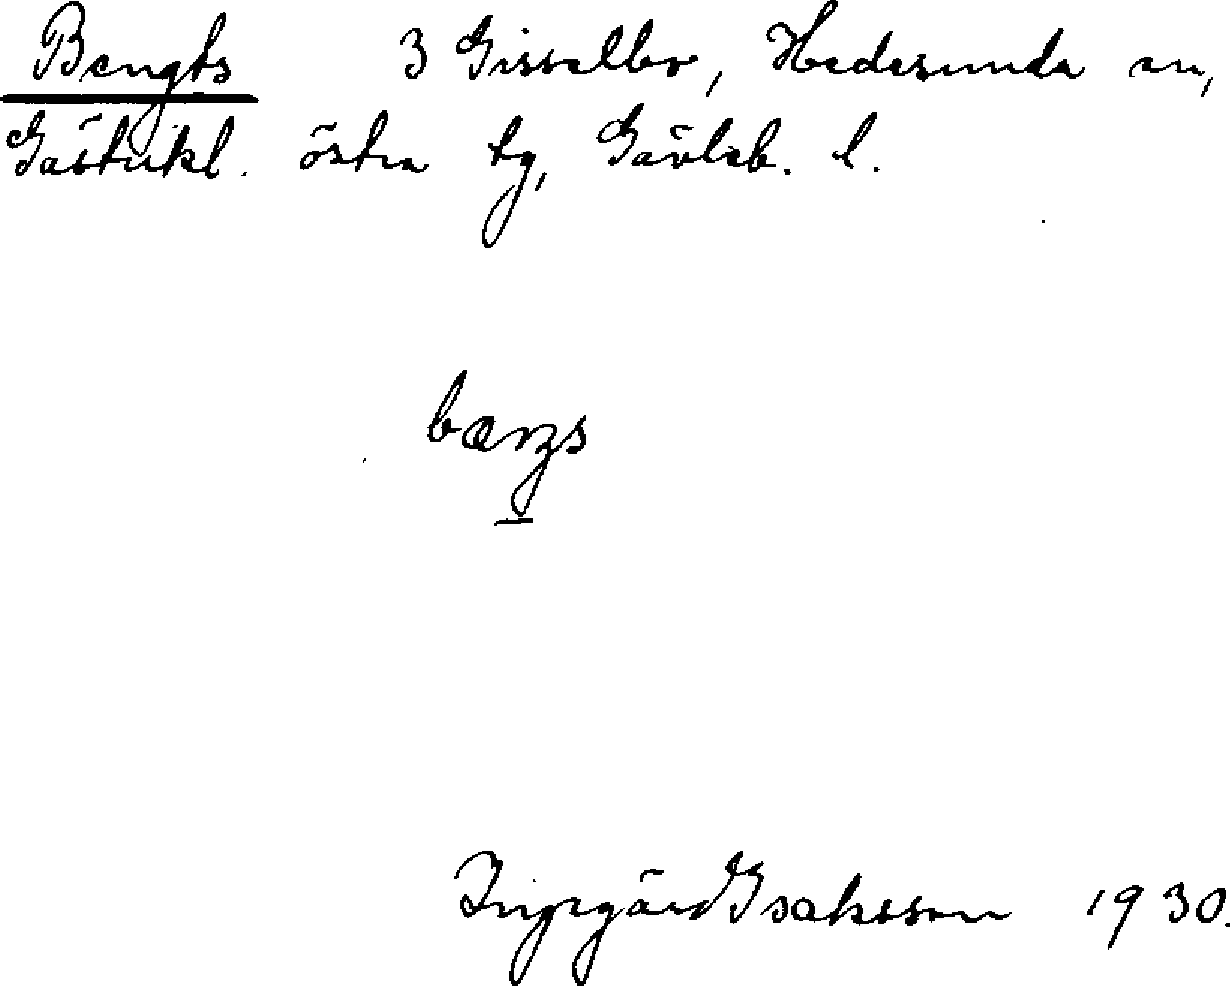 Bengts 3 Gisselbo, Hedesunda sn,
Gästrikl. östra tg, Gävleb. l.
bæŋs
Ingegärd Isaksson 1930.